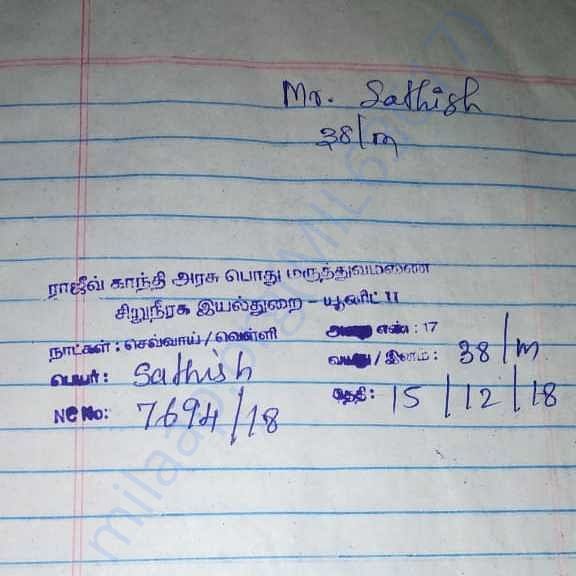 Mr. Sathish
38/m
ராஜீவ் காந்தி அரசு பொது மருத்துவமனை
சிறுநீரக இயல்துறை - யூனிட் II
நாட்கள் : செவ்வாய் / வெள்ளி அறை எண் : 17
பெயர்: Sathish வயது / இனம் : 38/m
NC No: 7694/18 தேதி : 15/12/18